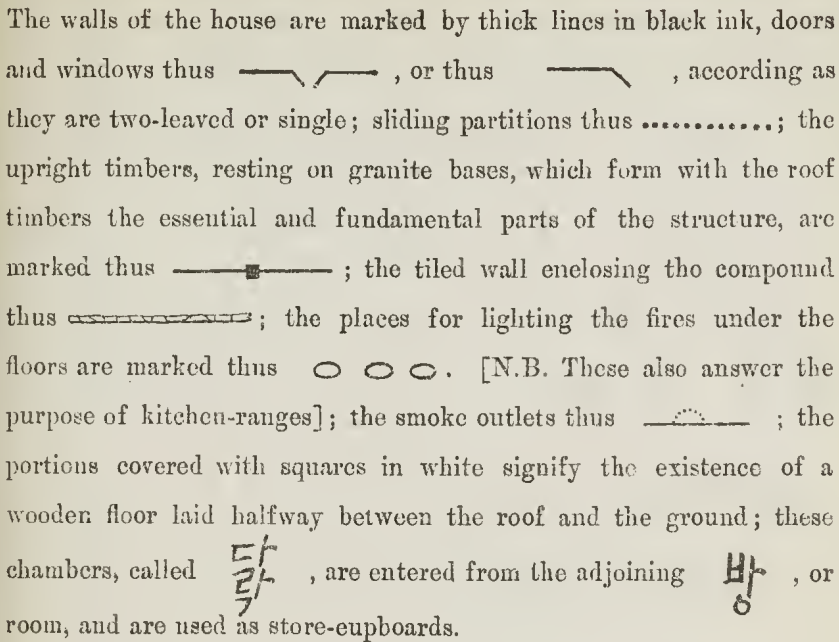 The walls of the house are marked by thick lines in black ink, doors
and windows thus , or thus , according as
they are two-leaved or single; sliding partitions thus ............; the
upright timbers, resting on granite bases, which form with the roof
timbers the essential and fundamental parts of the structure, are
marked thus ; the tiled wall enclosing the compound
thus ; the places for lighting the fires under the
floors are marked thus . [N.B. These also answer the
purpose of kitchen-ranges]; the smoke outlets thus ; the
portions covered with squares in white signify the existence of a
wooden floor laid halfway between the roof and the ground; these
chambers, called 다락 , are entered from the adjoining 방 , or
room, and are used as store-cupboards.